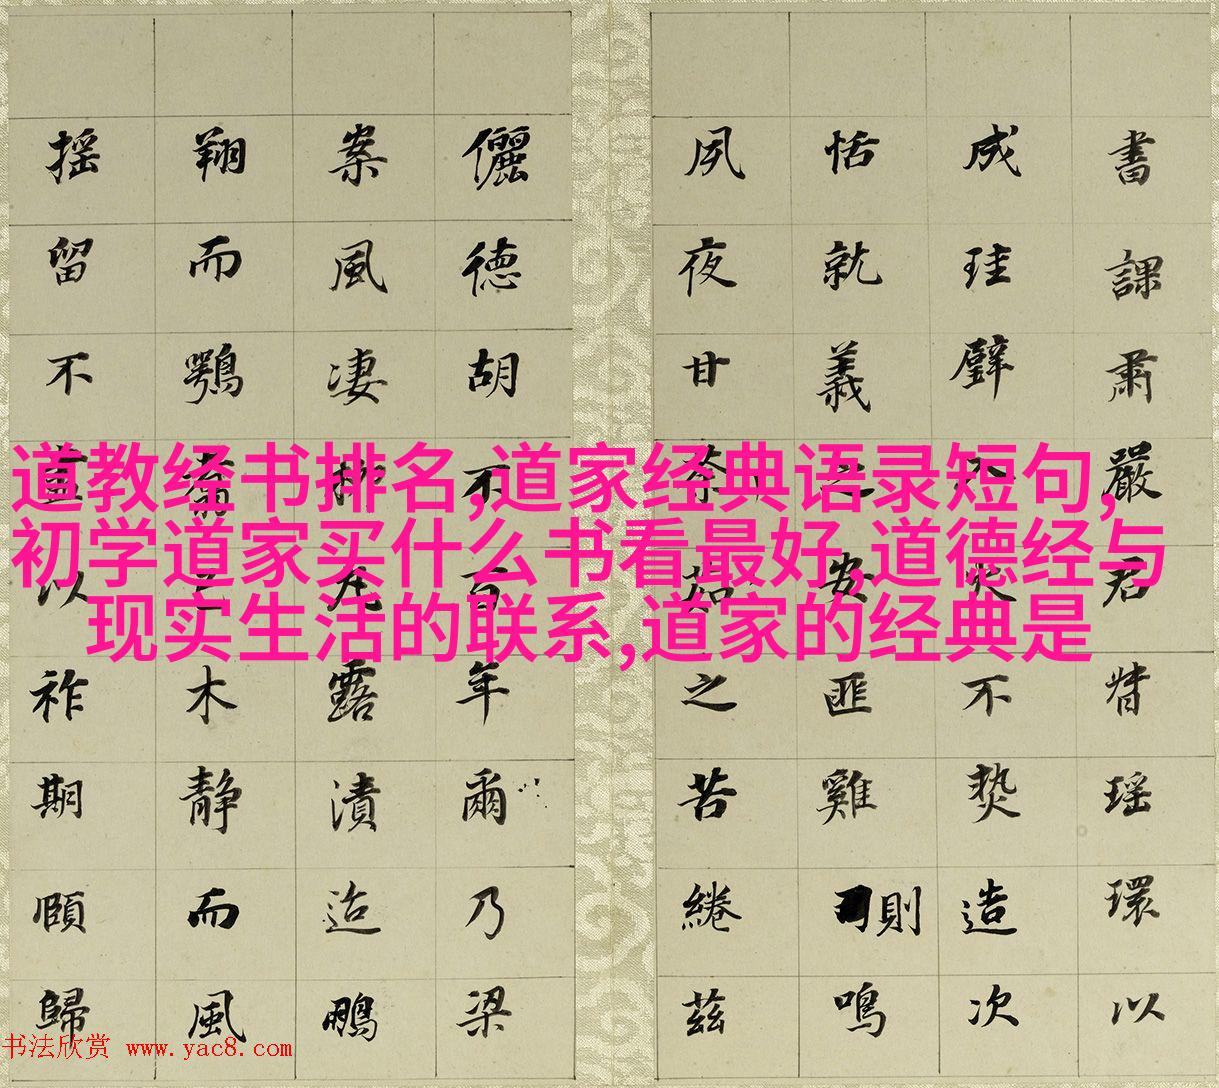 道教经书排名,道家经典语录短句,
初学道家买什么书看最好,道德经与
现实生活的联系,道家的经典是
書課肅嚴君瑶環以
成珪璧火不熱造次
恬就義之安匪雞則鳴
夙夜甘荼茹之苦綣茲
儷德胡不百年爾乃梁
案風凄露漬迨鵬
翔而鶚木靜而風
摇留不宜以祚期頤歸
书法欣赏 www.yac8.com